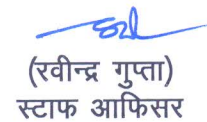 (रवीन्द्र गुप्ता)
स्टाफ आफिसर